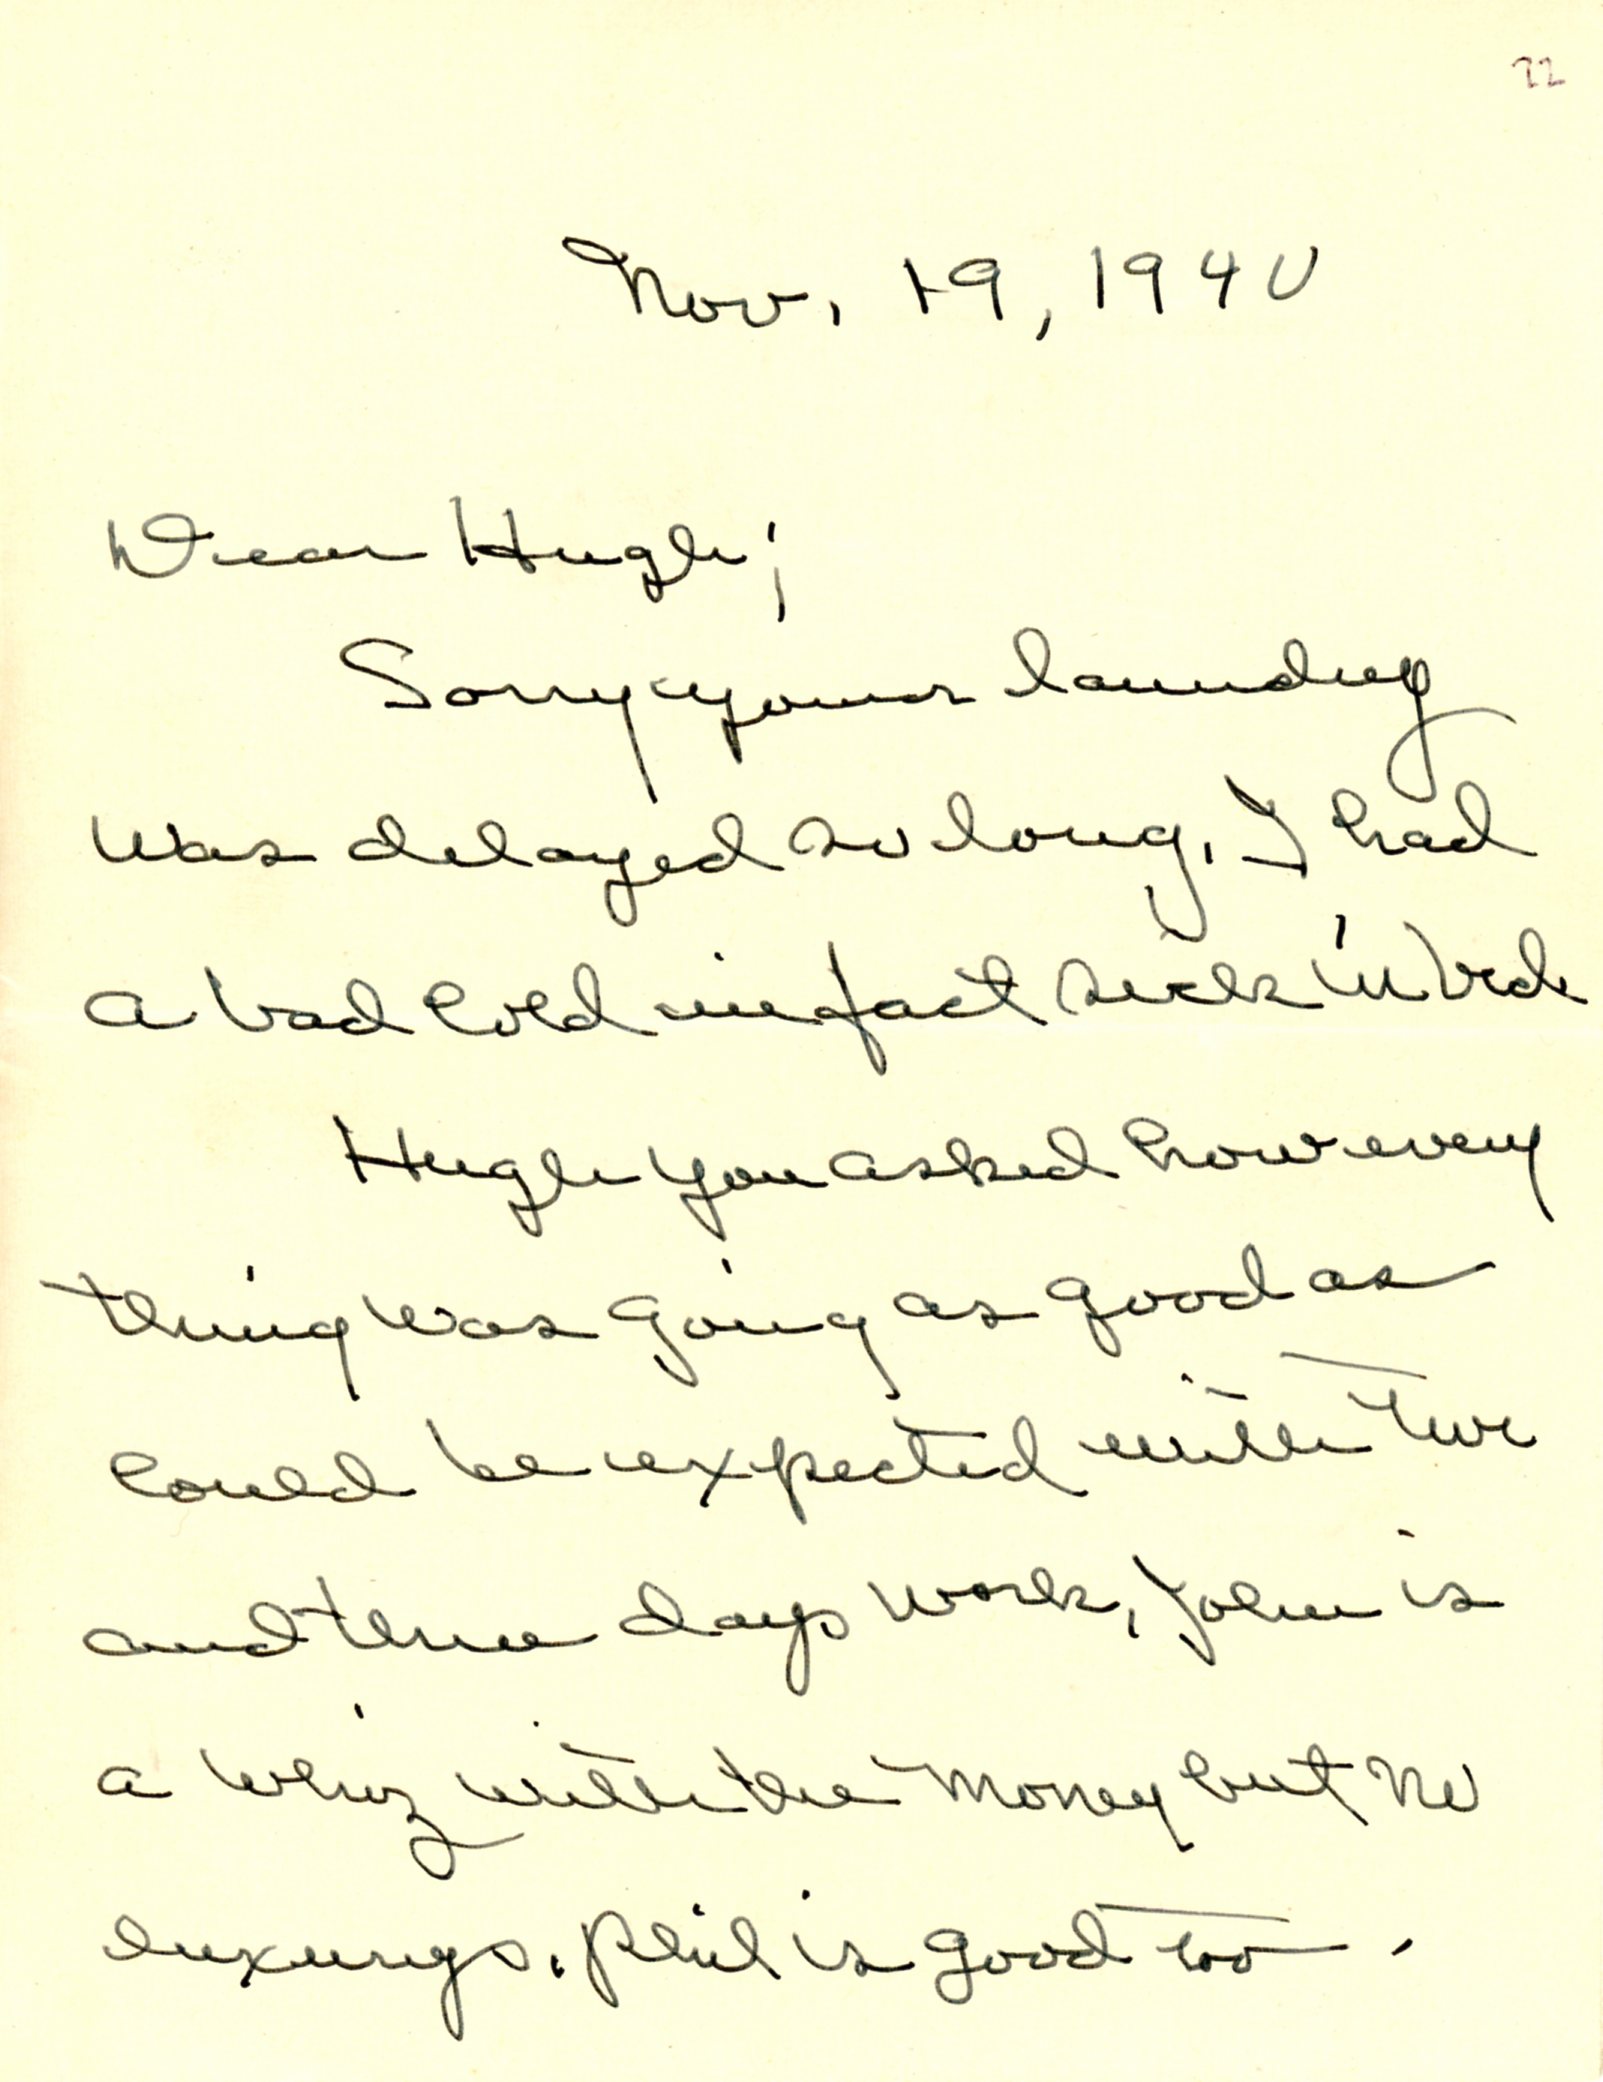 22
Nov. 19, 1940
Dear Hugh;
Sorry your laundry
was delayed so long, I had
a bad cold in fact sick in bed
Hugh you asked how every
thing was going as good as
could be expected with two
and three days work, John is
a whiz with the money but no
luxurys. Phil is good too.